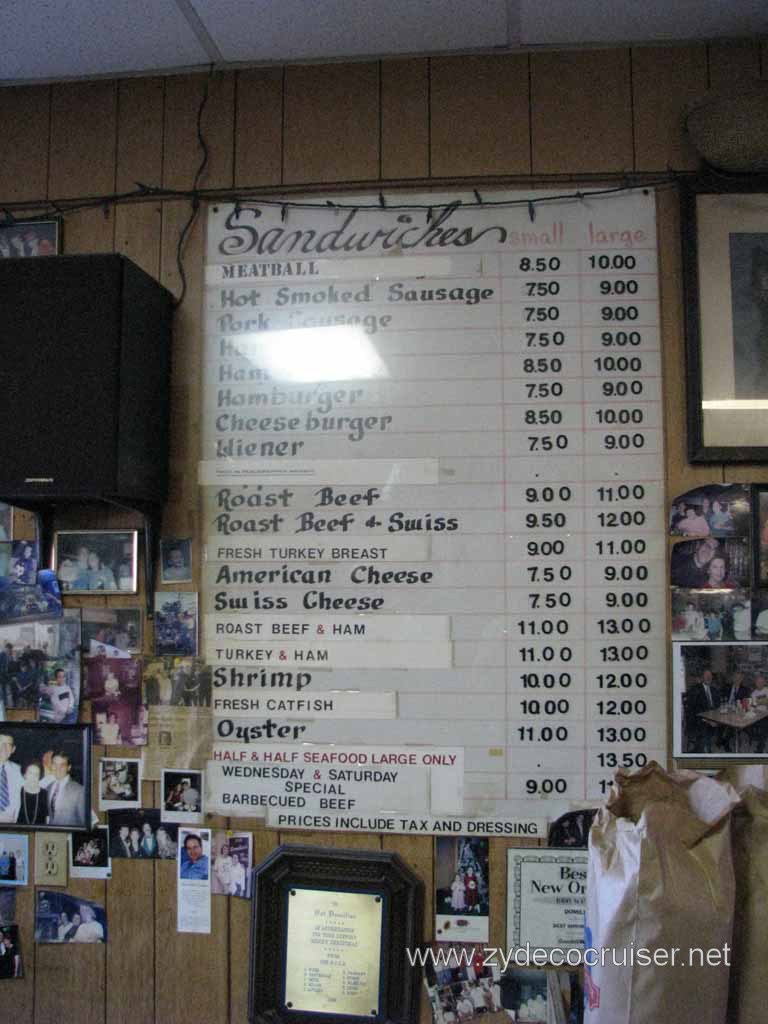 Sandwiches small large
MEATBALL 8.50 10.00
Hot Smoked Sausage 7.50 9.00
Pork Sausage 7.50 9.00
7.50 9.00
8.50 10.00
Hamburger 7.50 9.00
Cheeseburger 8.50 10.00
Wiener 7.50 9.00
Roast Beef 9.00 11.00
Roast Beef & Swiss 9.50 12.00
FRESH TURKEY BREAST 9.00 11.00
American Cheese 7.50 9.00
Swiss Cheese 7.50 9.00
ROAST BEEF & HAM 11.00 13.00
TURKEY & HAM 11.00 13.00
Shrimp 10.00 12.00
FRESH CATFISH 10.00 12.00
Oyster 11.00 13.00
HALF & HALF SEAFOOD LARGE ONLY 13.50
WEDNESDAY & SATURDAY
SPECIAL
BARBECUED BEEF 9.00
PRICES INCLUDE TAX AND DRESSING
New
www.zydecocruiser.net